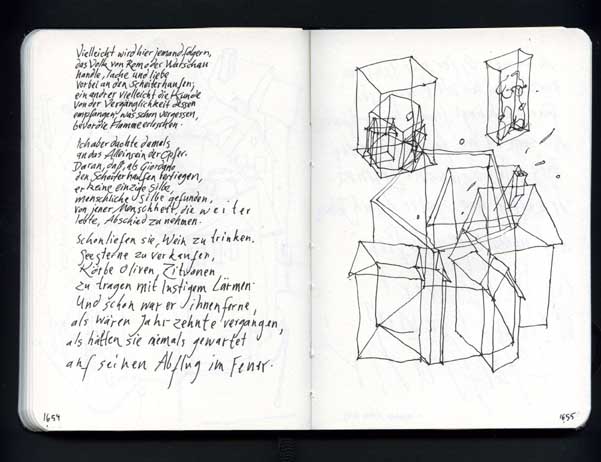 Vielleicht wird hier jemand folgern,
das Volk von Rom oder Warschau
handle, lache und liebe
vorbei an den Scheiterhaufen;
ein andrer vielleicht die Kunde
von der Vergänglichkeit dessen
empfangen, was schon vergessen,
bevor die Flamme erloschen.
Ich aber dachte damals
an das Alleinsein der Opfer.
Daran, daß, als Giordano
den Scheiterhaufen bestiegen,
er keine einzige Silbe,
menschliche Silbe gefunden,
von jener Menschheit, die weiter
lebte, Abschied zu nehmen.
Schon liefen sie, Wein zu trinken.
Seesterne zu verkaufen,
Körbe Oliven, Zitronen
zu tragen mit lustigem Lärmen.
Und schon war er ihnen ferne,
als wären Jahrzehnte vergangen,
als hätten sie niemals gewartet
auf seinen Abflug im Feuer.
1654
1655